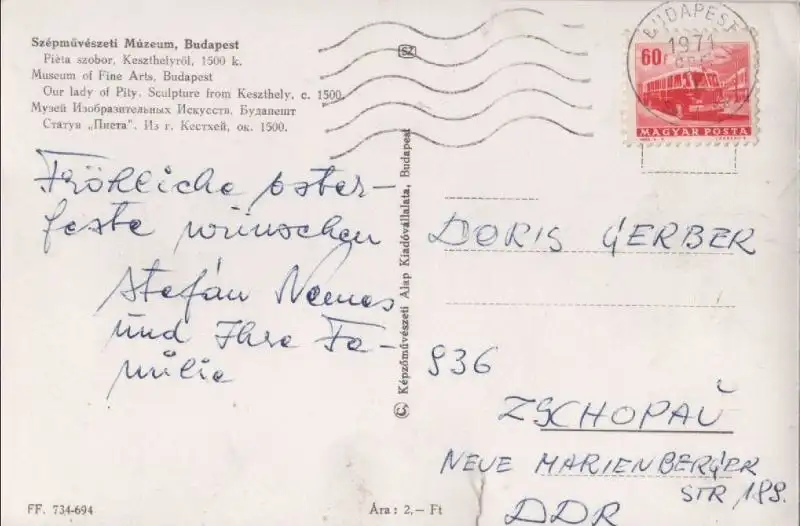 Szépművészeti Múzeum, Budapest
Pièta szobor, Keszthelyről, 1500 k.
Museum of Fine Arts, Budapest
Our lady of Pity. Sculpture from Keszthely, c. 1500.
Музей Изобразительных Искусств, Будапешт
Статуя „Пиета". Из г. Кестхей, ок. 1500.
Fröhliche oster-
feste wünschen
Stefán Nemes
und Ihre Fa-
milie
FF. 734-694
Ára : 2,— Ft
© Képzőművészeti Alap Kiadóvállalata, Budapest
SZ
BUDAPEST
1971
60f
MAGYAR POSTA
DORIS GERBER
936
ZSCHOPAU
NEUE MARIENBERGER
STR 188.
DDR